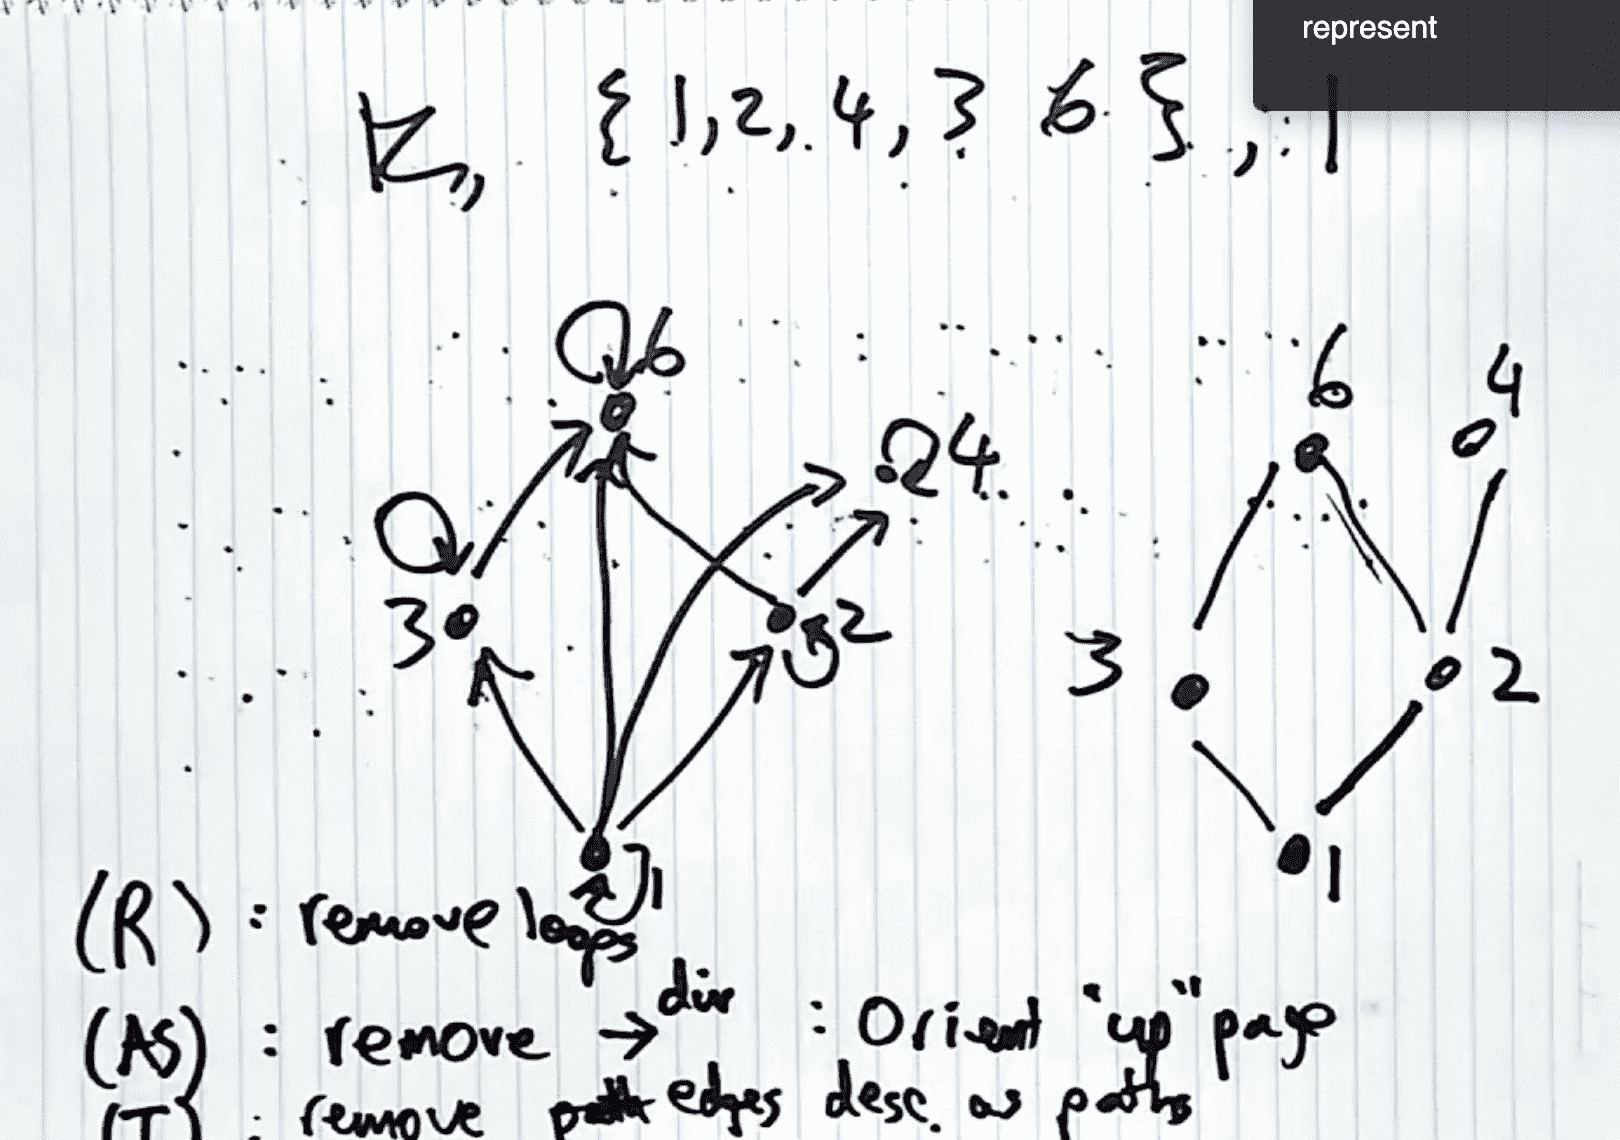 represent
{ 1, 2, 4, 3 6 } , |
6
4
3
2
1
6
4
3
2
1
(R) : remove loops
(AS) : remove → dir : Orient "up" page
(T) : remove edges desc. as paths